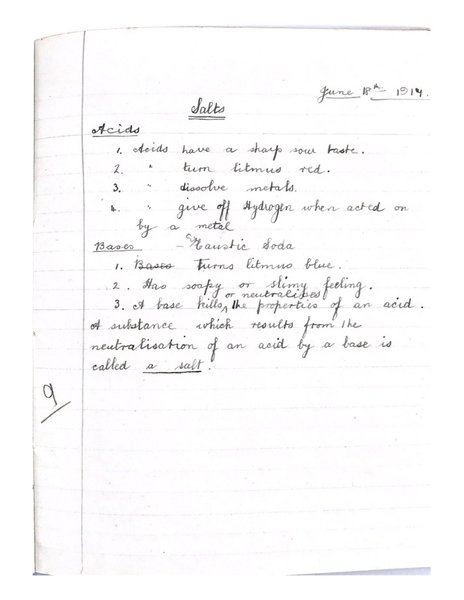 June 18th 1914.
Salts
Acids
1. Acids have a sharp sour taste.
2. " turn litmus red.
3. " dissolve metals.
4. " give off Hydrogen when acted on
by a metal
Bases - Caustic Soda
1. Bases Turns litmus blue.
2. Has soapy or slimy feeling.
or neutralises
3. A base kills the properties of an acid.
A substance which results from the
neutralisation of an acid by a base is
called a salt.
9